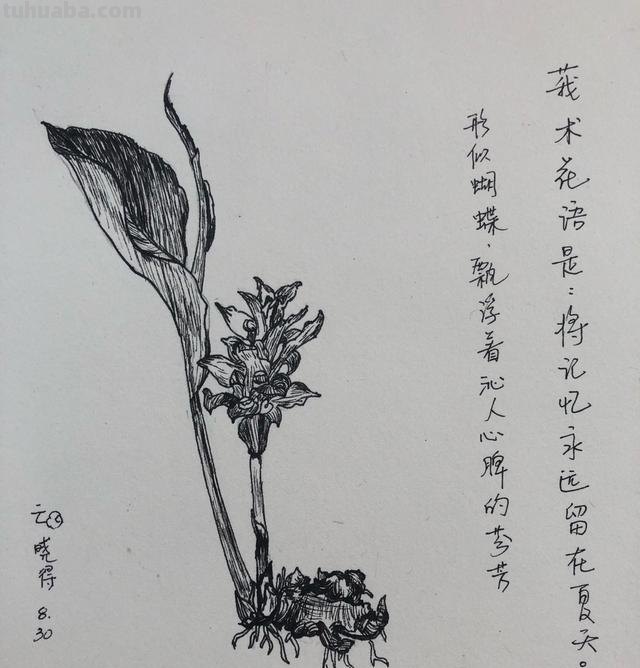 tuhuaba.com
莪术花语是：将记忆永远留在夏天。
形似蝴蝶，飘浮着沁人心脾的芬芳
晓得
8.
30